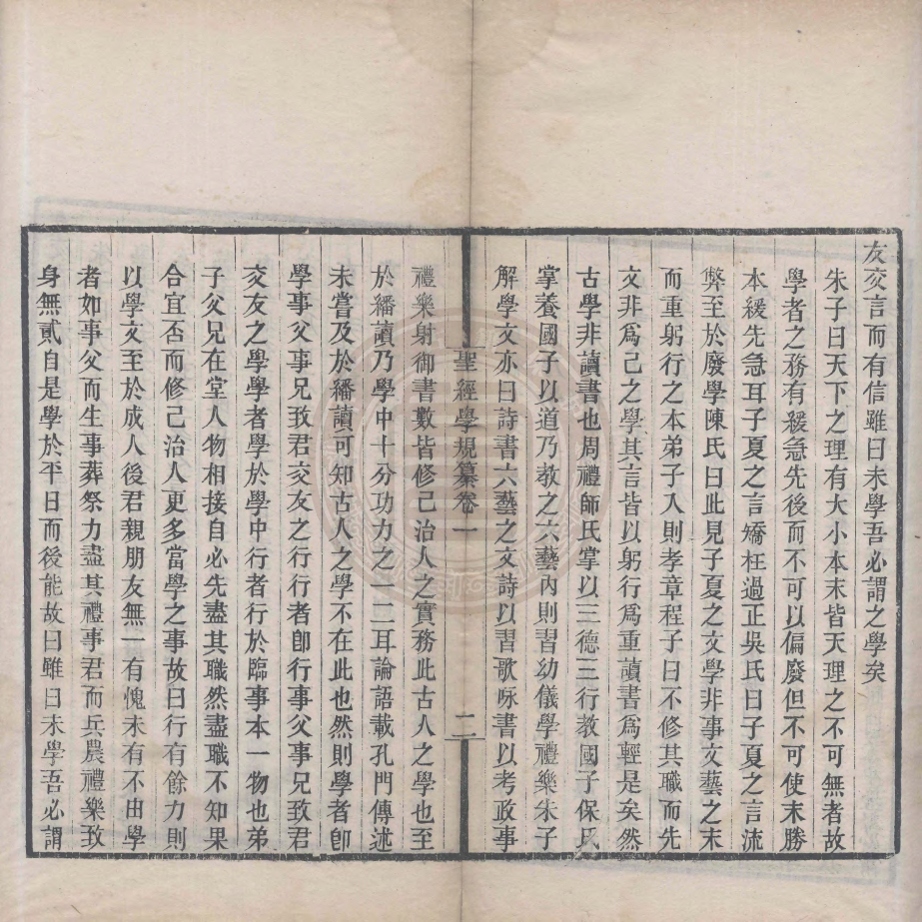 友交言而有信雖曰未學吾必謂之學矣
朱子曰天下之理有大小本末皆天理之不可無者故
學者之務有緩急先後而不可以偏廢但不可使末勝
本緩先急耳子夏之言矯枉過正吳氏曰子夏之言流
弊至於廢學陳氏曰此見子夏之文學非事文藝之末
而重躬行之本弟子入則孝章程子曰不修其職而先
文非爲己之學其言皆以躬行爲重讀書爲輕是矣然
古學非讀書也周禮師氏掌以三德三行教國子保氏
掌養國子以道乃教之六藝內則習幼儀學禮樂朱子
解學文亦曰詩書六藝之文詩以習歌咏書以考政事
聖經學規纂卷一
二
禮樂射御書數皆修己治人之實務此古人之學也至
於繙讀乃學中十分功力之一二耳論語載孔門傳述
未嘗及於繙讀可知古人之學不在此也然則學者卽
學事父事兄致君交友之行行者卽行事父事兄致君
交友之學學者學於學中行者行於臨事本一物也弟
子父兄在堂人物相接自必先盡其職然盡職不知果
合宜否而修己治人更多當學之事故曰行有餘力則
以學文至於成人後君親朋友無一有愧未有不由學
者如事父而生事葬祭力盡其禮事君而兵農禮樂致
身無貳自是學於平日而後能故曰雖曰未學吾必謂